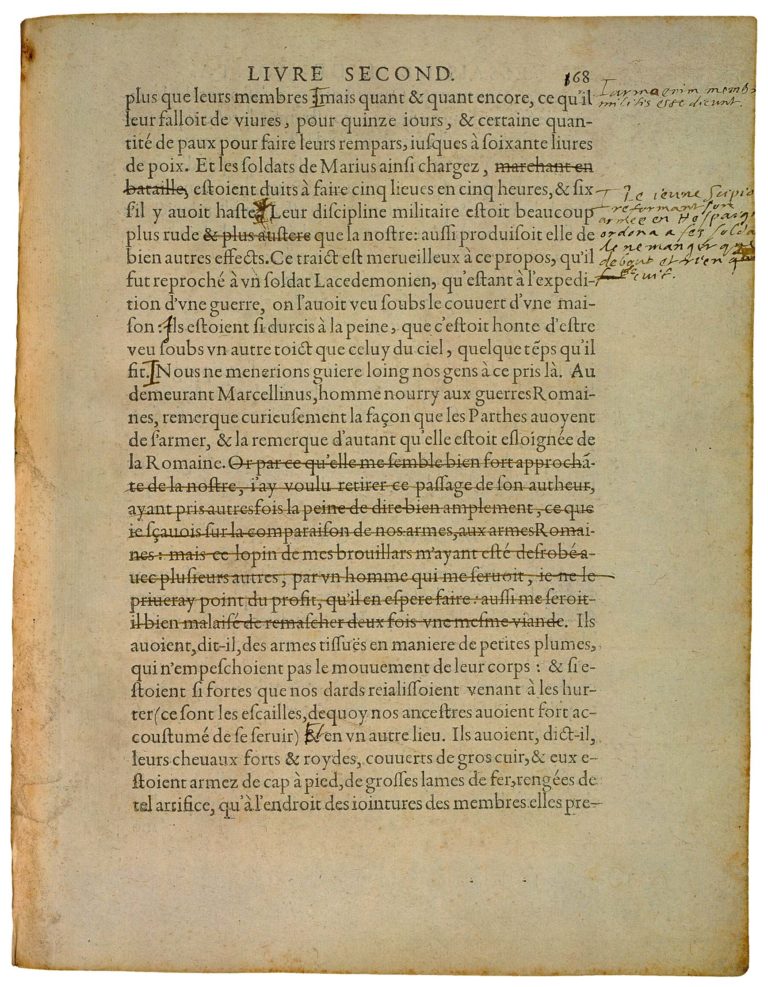 LIVRE SECOND. 168
plus que leurs membres mais quant & quant encore, ce qu'il
leur falloit de viures, pour quinze iours, & certaine quan-
tité de paux pour faire leurs rempars, iusques à soixante liures
de poix. Et les soldats de Marius ainsi chargez, marchant en
bataille, estoient duits à faire cinq lieues en cinq heures, & six
s'il y auoit haste Leur discipline militaire estoit beaucoup
plus rude & plus austere que la nostre: aussi produisoit elle de
bien autres effects. Ce traict est merueilleux à ce propos, qu'il
fut reproché à vn soldat Lacedemonien, qu'estant à l'expedi-
tion d'vne guerre, on l'auoit veu soubs le couuert d'vne mai-
son: Ils estoient si durcis à la peine, que c'estoit honte d'estre
veu soubs vn autre toict que celuy du ciel, quelque tẽps qu'il
fit. Nous ne menerions guiere loing nos gens à ce pris là. Au
demeurant Marcellinus, homme nourry aux guerres Romai-
nes, remerque curieusement la façon que les Parthes auoyent
de s'armer, & la remerque d'autant qu'elle estoit esloignée de
la Romaine. Or par ce qu'elle me semble bien fort approchã-
te de la nostre, i'ay voulu retirer ce passage de son autheur,
ayant pris autresfois la peine de dire bien amplement, ce que
ie sçauois sur la comparaison de nos armes, aux armes Romai-
nes: mais ce lopin de mes brouillars m'ayant esté desrobé a-
uec plusieurs autres, par vn homme qui me seruoit, ie ne le
priueray point du profit, qu'il en espere faire: aussi me seroit-
il bien malaisé de remascher deux fois vne mesme viande. Ils
auoient, dit-il, des armes tissuës en maniere de petites plumes,
qui n'empeschoient pas le mouuement de leur corps: & si e-
stoient si fortes que nos dards reialissoient venant à les hur-
ter (ce sont les escailles, dequoy nos ancestres auoient fort ac-
coustumé de se seruir) & en vn autre lieu. Ils auoient, dict-il,
leurs cheuaux forts & roydes, couuerts de gros cuir, & eux e-
stoient armez de cap à pied, de grosses lames de fer, rengées de
tel artifice, qu'à l'endroit des iointures des membres elles pre-
arma enim membr
militis esse dicunt.
Le ieune Scipio
reformant son
armee en Hespaign
ordona a ses solda
de ne manger que
debout et rien q
de cuit.